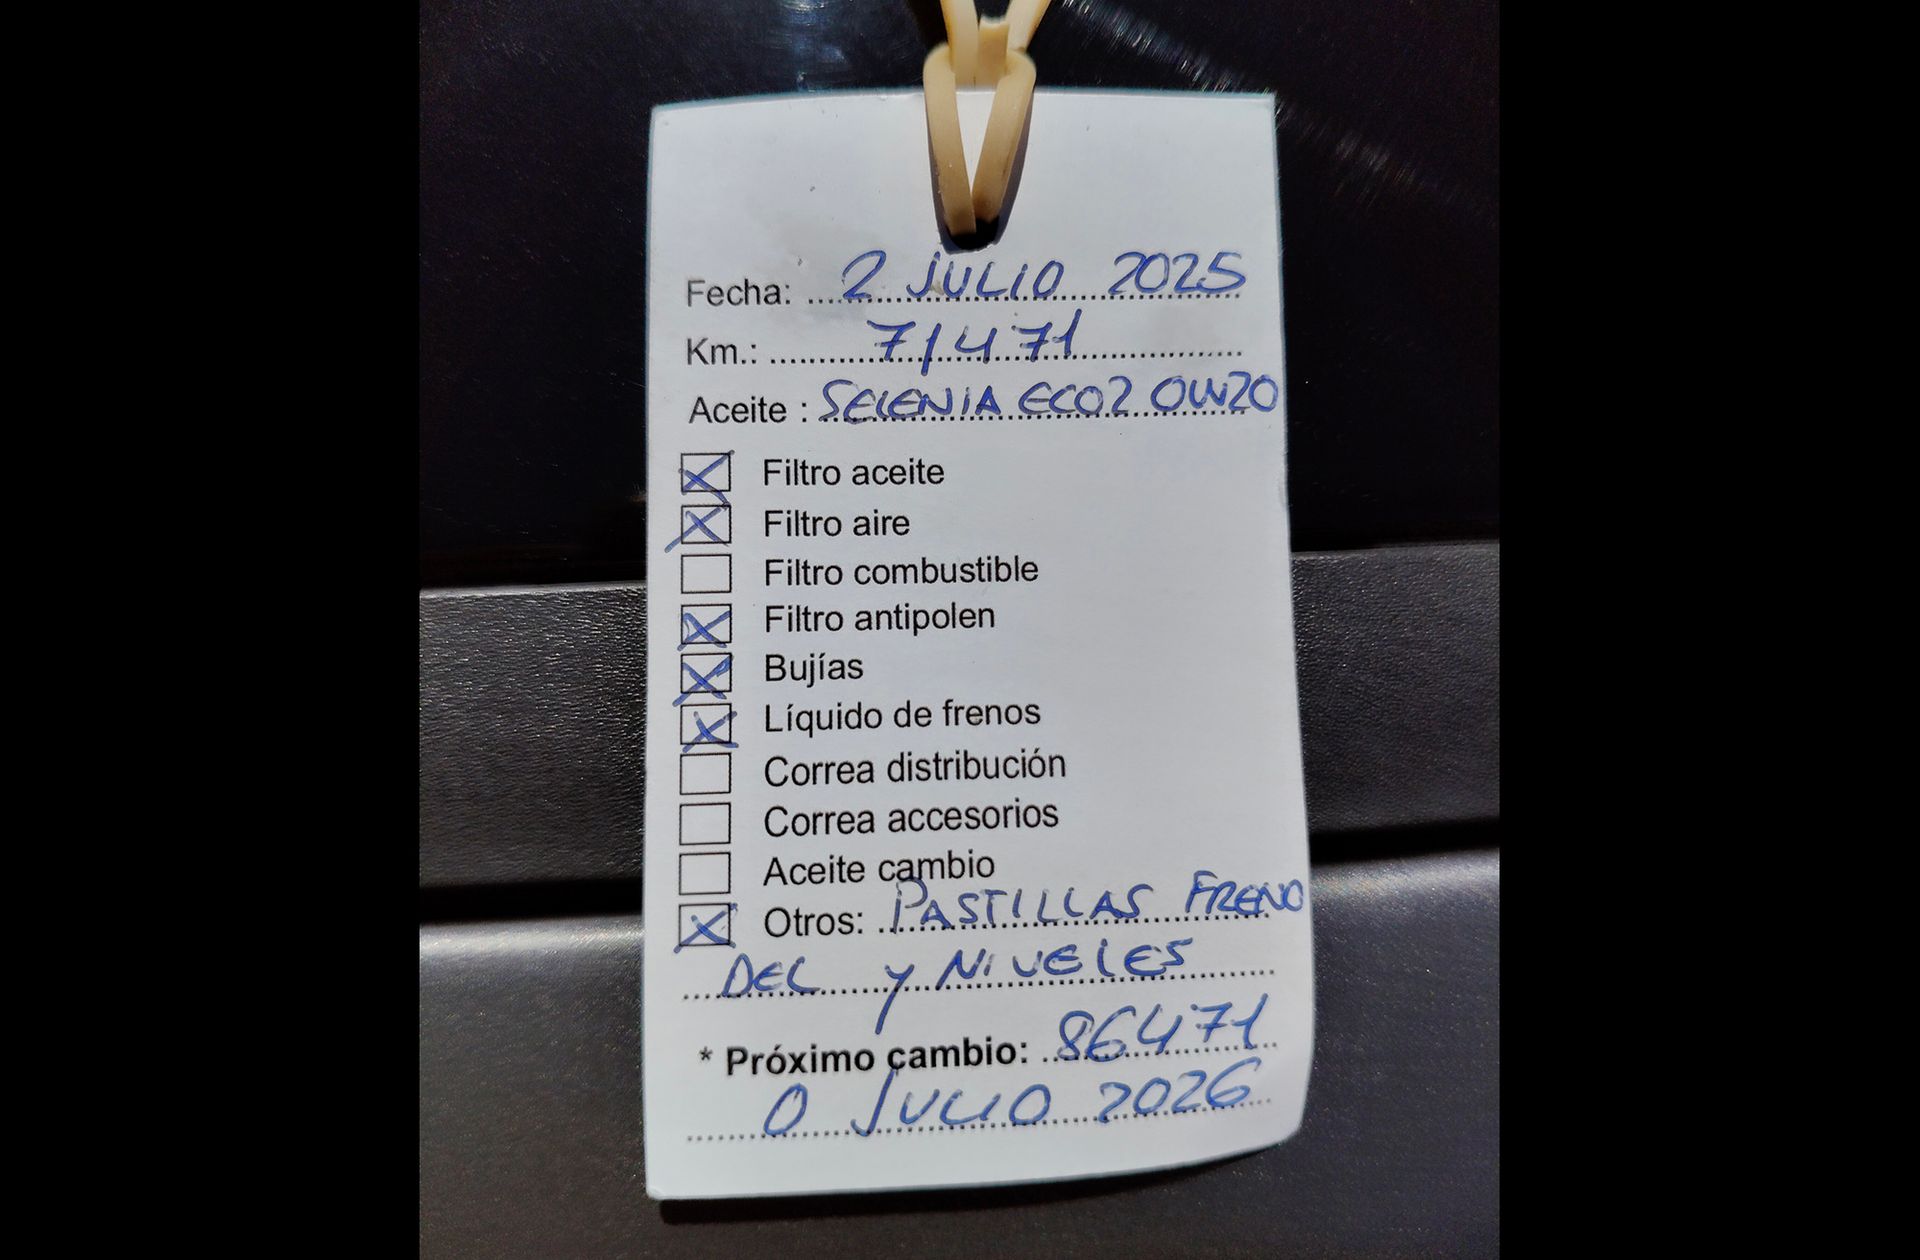 Fecha: 2 JULIO 2025
Km.: 71471
Aceite : SELENIA ECO2 0W20
Filtro aceite
Filtro aire
Filtro combustible
Filtro antipolen
Bujías
Líquido de frenos
Correa distribución
Correa accesorios
Aceite cambio
Otros: PASTILLAS FRENO
DEL y NIVELES
* Próximo cambio: 86471
O JULIO 2026